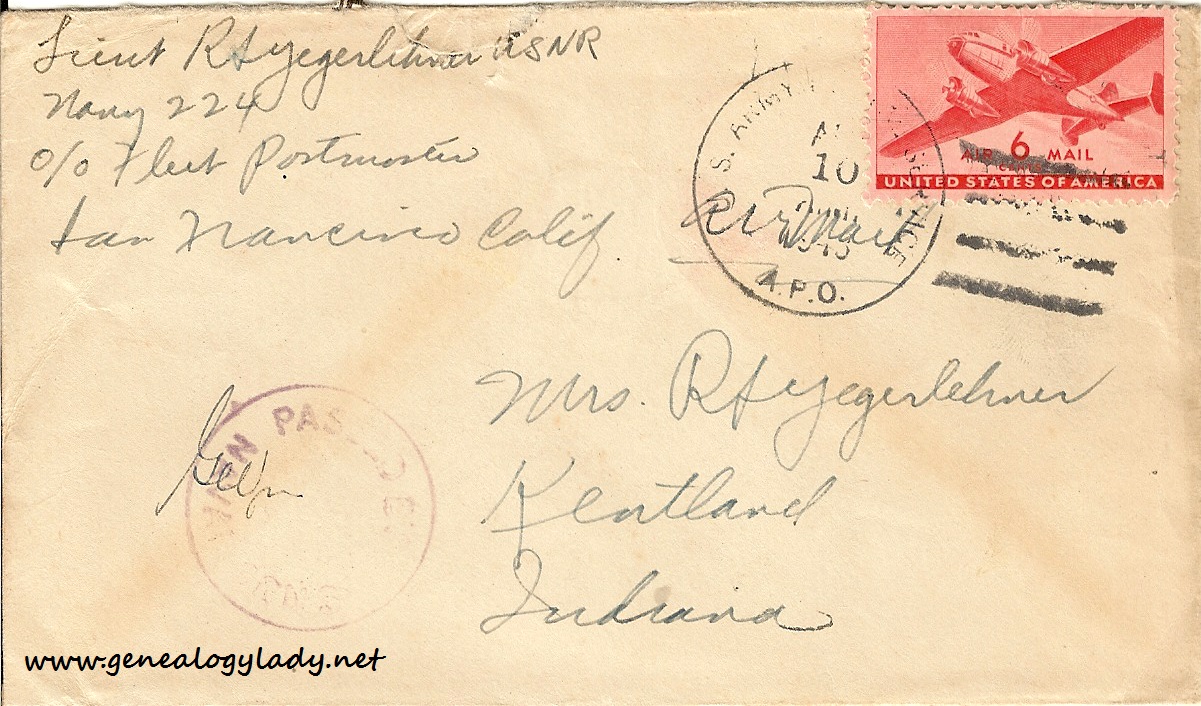 Lieut R H Yegerlehner USNR
Navy 224
c/o Fleet Postmaster
San Francisco Calif
U.S. ARMY
10
A.P.O.
6
AIR MAIL
UNITED STATES OF AMERICA
Air Mail
Mrs. R H Yegerlehner
Kentland
Indiana
www.genealogylady.net